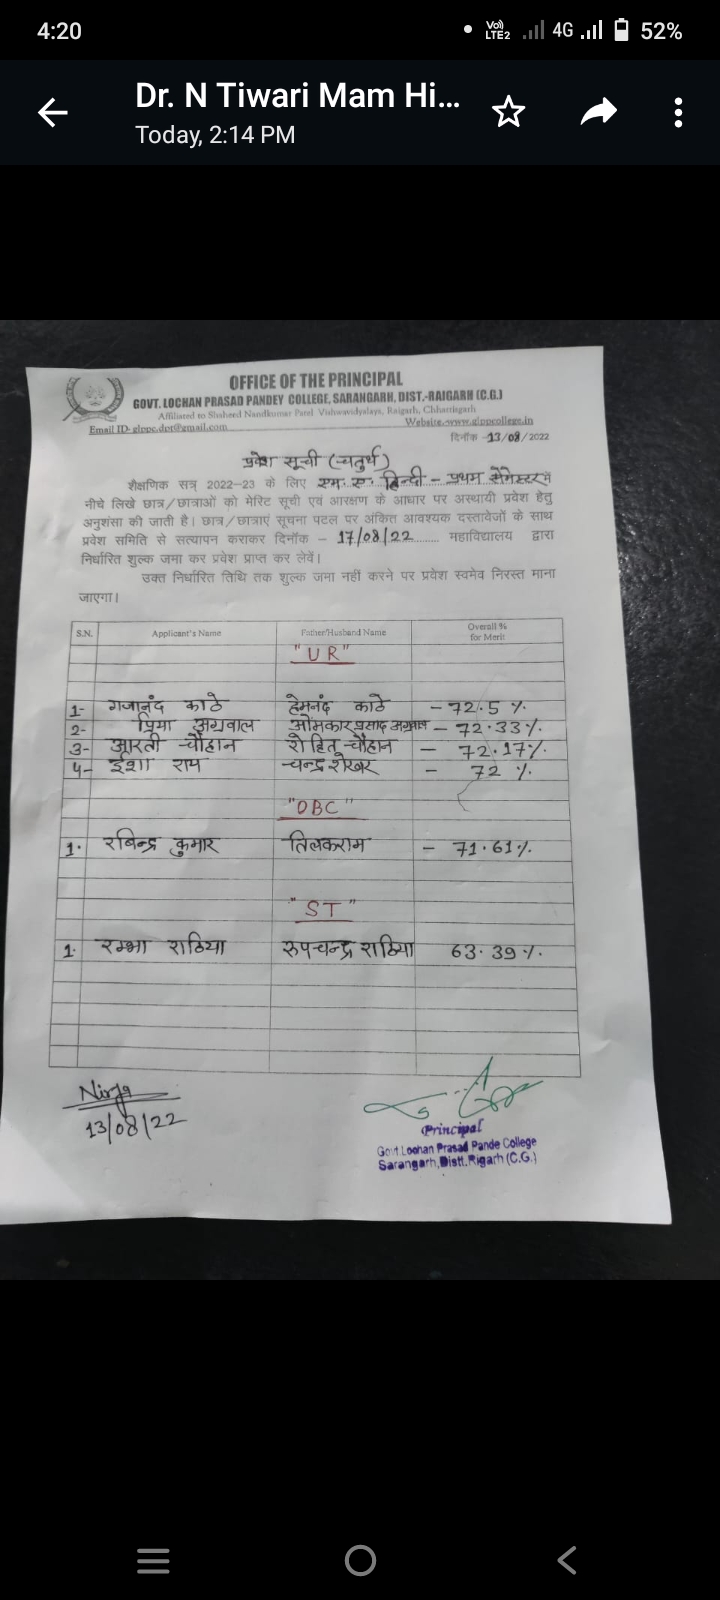 4:20
Vo) LTE2 4G 52%
Dr. N Tiwari Mam Hi...
Today, 2:14 PM
OFFICE OF THE PRINCIPAL
GOVT. LOCHAN PRASAD PANDEY COLLEGE, SARANGARH, DIST.-RAIGARH (C.G.)
Affiliated to Shaheed Nandkumar Patel Vishwavidyalaya, Raigarh, Chhattisgarh
Email ID- glppc.dpt@gmail.com Website-www.glppcollege.in
दिनाँक -13/08/2022
प्रवेश सूची (चतुर्थ)
शैक्षणिक सत्र 2022-23 के लिए एम. ए. हिन्दी - प्रथम सेमेस्टर में
नीचे लिखे छात्र/छात्राओं को मेरिट सूची एवं आरक्षण के आधार पर अस्थायी प्रवेश हेतु
अनुशंसा की जाती है। छात्र/छात्राएं सूचना पटल पर अंकित आवश्यक दस्तावेजों के साथ
प्रवेश समिति से सत्यापन कराकर दिनाँक - 17/08/22 ........ महाविद्यालय द्वारा
निर्धारित शुल्क जमा कर प्रवेश प्राप्त कर लेवें।
उक्त निर्धारित तिथि तक शुल्क जमा नहीं करने पर प्रवेश स्वमेव निरस्त माना
जाएगा।
S.N. Applicant's Name Father/Husband Name Overall % for Merit
"UR"
1- गजानंद काठे हेमनंद काठे - 72.5 %.
2- प्रिया अग्रवाल ओमकार प्रसाद अग्रवाल - 72.33%.
3- आरती चौहान रोहित चौहान - 72.17%.
4- ईशा राय चन्द्रशेखर - 72 %.
"OBC"
1. रबिन्द्र कुमार तिलकराम - 71.61%.
"ST"
1. रम्भा राठिया रुपचन्द्र राठिया 63.39%.
Nirja
13/08/22
Principal
Govt. Lochan Prasad Pande College
Sarangarh, Distt. Rigarh (C.G.)